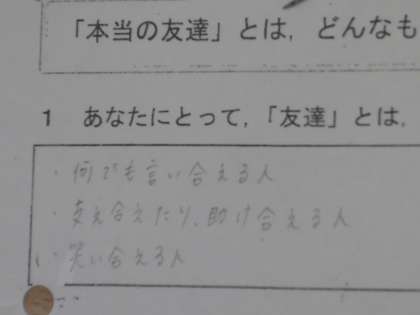 「本当の友達」とは，どんなも
1 あなたにとって，「友達」とは，
・何でも言い合える人
・支え合えたり、助け合える人
・笑い合える人